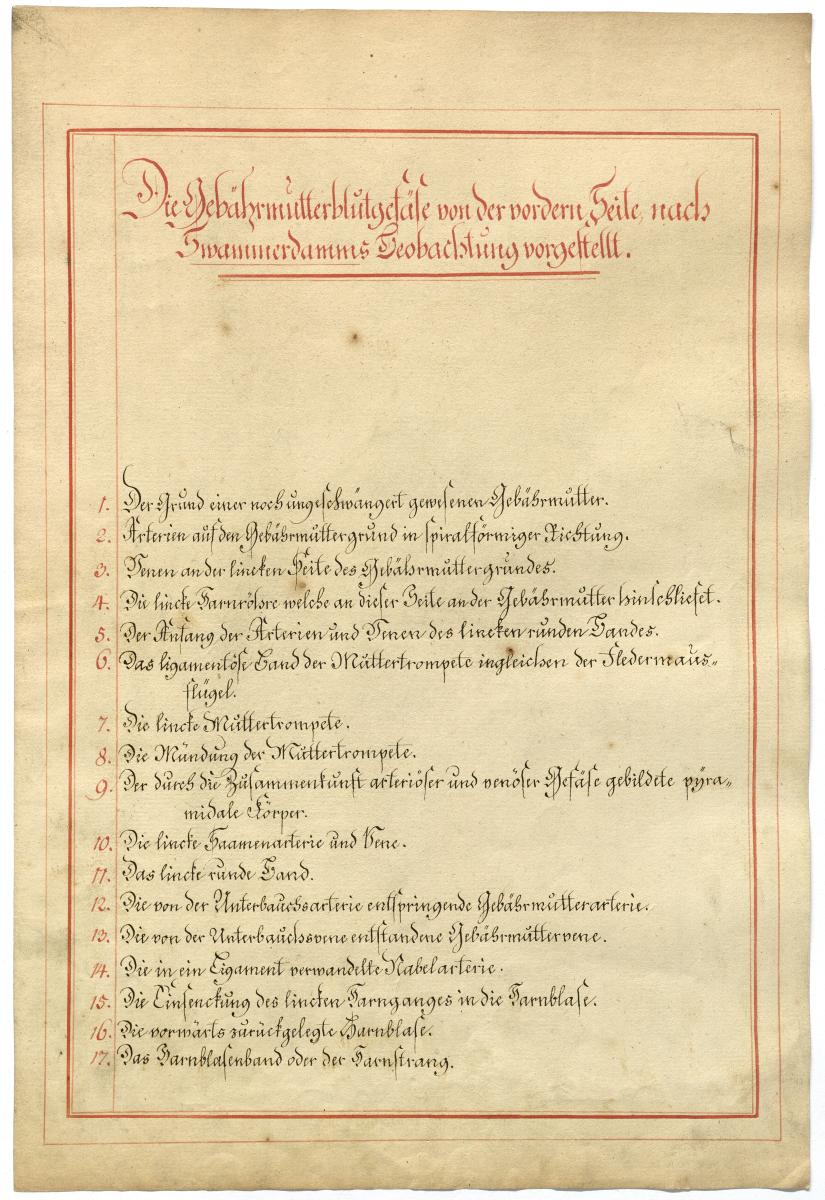 Die Gebährmutterblutgefäse von der vordern Seite, nach
Swammerdamms Beobachtung vorgestellt.
1. Der Grund einer noch ungeschwängert gewesenen Gebährmutter.
2. Arterien auf den Gebährmuttergrund in spiralförmiger Richtung.
3. Venen an der lincken Seite des Gebährmuttergrundes.
4. Die lincke Harnröhre welche an dieser Seite an der Gebährmutter hinschlieset.
5. Der Anfang der Arterien und Venen des lincken runden Bandes.
6. Das ligamentöse Band der Muttertrompete ingleichen der Fledermaus-
flügel.
7. Die lincke Muttertrompete.
8. Die Mündung der Muttertrompete.
9. Der durch die Zusammenkunft arteriöser und venöser Gefäse gebildete pyra-
midale Körper.
10. Die lincke Saamenarterie und Vene.
11. Das lincke runde Band.
12. Die von der Unterbauchsarterie entspringende Gebährmutterarterie.
13. Die von der Unterbauchsvene entstandene Gebährmuttervene.
14. Die in ein Ligament verwandelte Nabelarterie.
15. Die Einsenckung des lincken Harnganges in die Harnblase.
16. Die vorwärts zurückgelegte Harnblase.
17. Das Harnblasenband oder der Harnstrang.